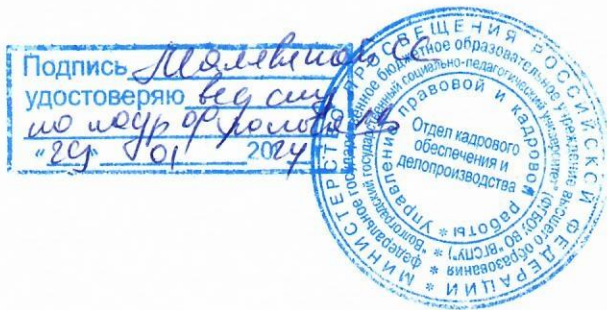 Подпись
удостоверяю вед
по
"29" 01 2024
МИНИСТЕРСТВО ПРОСВЕЩЕНИЯ РОССИЙСКОЙ ФЕДЕРАЦИИ *
федеральное государственное бюджетное образовательное учреждение высшего образования *
"Волгоградский государственный социально-педагогический университет" (ФГБОУ ВО "ВГСПУ") *
Управление правовой и кадровой работы *
Отдел кадрового
обеспечения и
делопроизводства